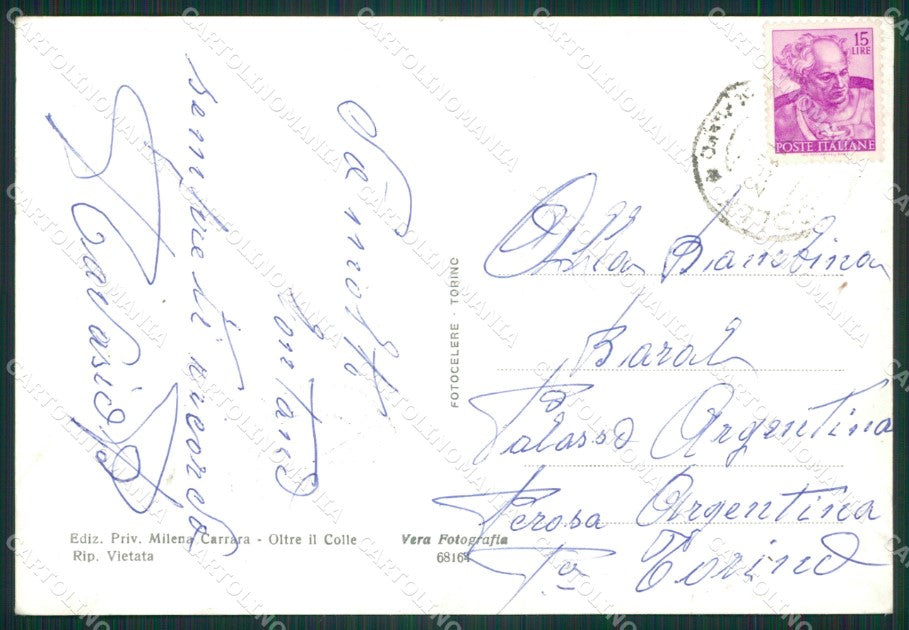 Da molto
lontano
sempre ti ricordo
15
LIRE
POSTE ITALIANE
Alla Bambina
Baral
Palasso Argentina
Perosa Argentina
Torino
FOTOCELERE - TORINO
Ediz. Priv. Milena Carrara - Oltre il Colle
Rip. Vietata
Vera Fotografia
68164
CARTOLINOMANIA